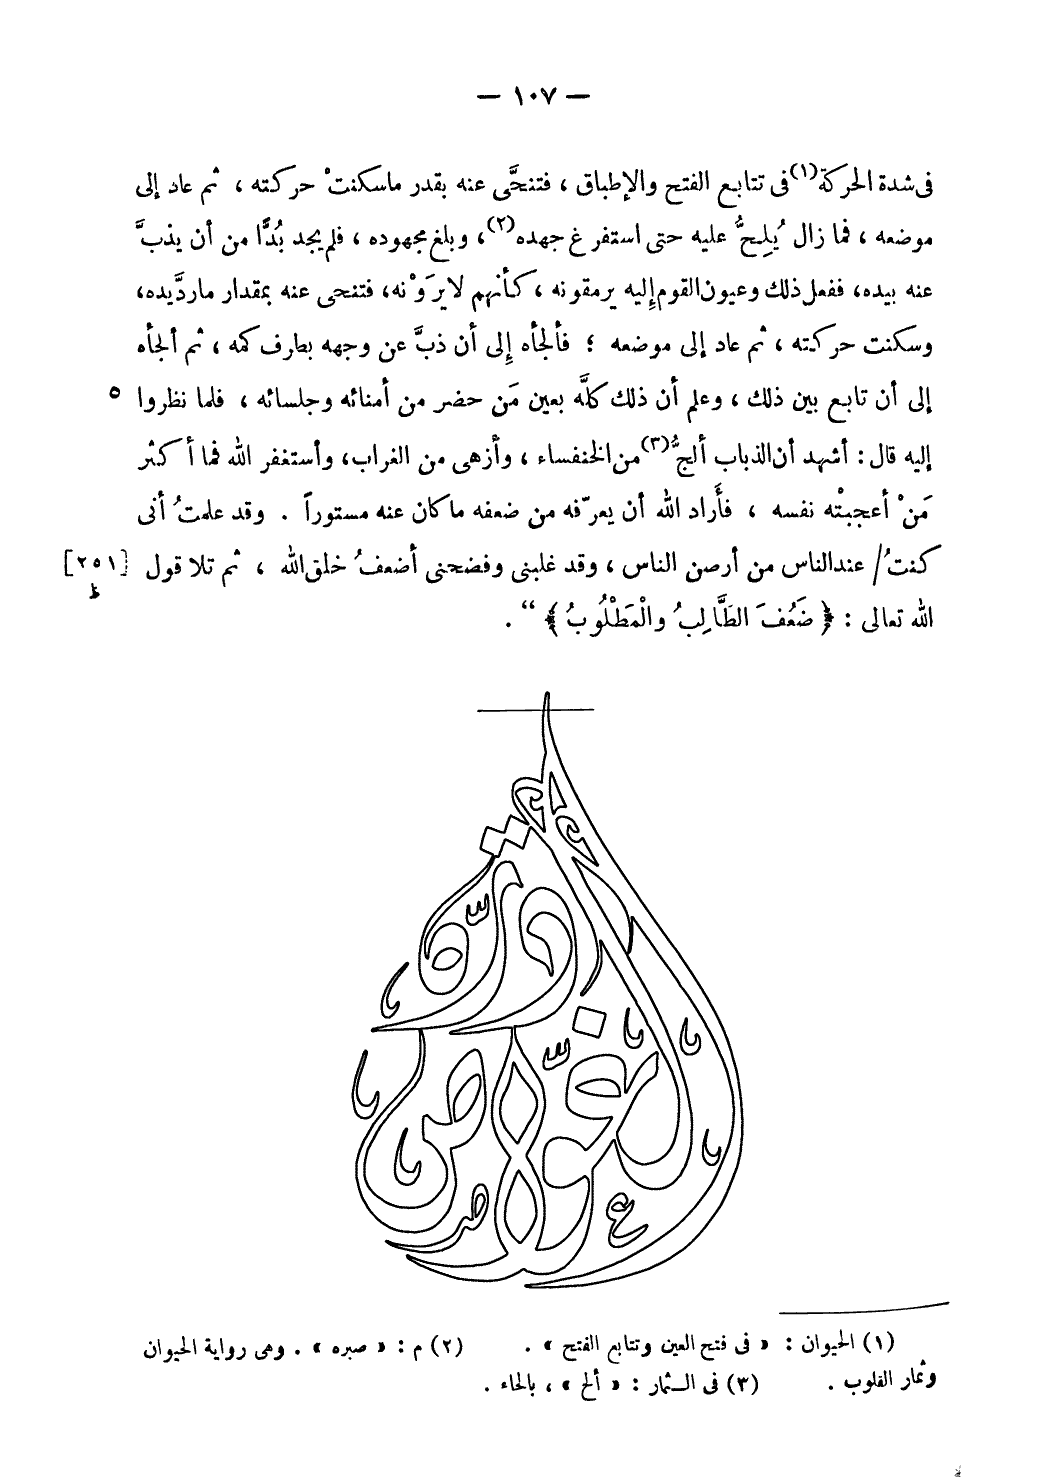 — ١٠٧ —
فى شدة الحركة(١) فى تتابع الفتح والإطباق ، فتنحَّى عنه بقدر ماسكنتْ حركته ، ثم عاد إلى
موضعه ، فما زال يُلِحُّ عليه حتى استفرغ جهده(٢)، وبلغ مجهوده ، فلم يجد بُدًّا من أن يذبَّ
عنه بيده، ففعل ذلك وعيون القوم إليه يرمقونه ، كأنهم لايرَوْنه، فتنحى عنه بمقدار ماردَّ يده،
وسكنت حركته ، ثم عاد إلى موضعه ؛ فألجأه إلى أن ذبَّ عن وجهه بطرف كمه ، ثم ألجأه
إلى أن تابع بين ذلك ، وعلم أن ذلك كلَّه بعين مَن حضر من أمنائه وجلسائه ، فلما نظروا ٥
إليه قال : أشهد أن الذباب ألجُّ(٣) من الخنفساء ، وأزهى من الغراب، وأستغفر الله فما أكثر
مَنْ أعجبتْه نفسه ، فأراد الله أن يعرّفه من ضعفه ماكان عنه مستوراً . وقد علمتُ أنى
كنتُ/ عند الناس من أرصن الناس ، وقد غلبنى وفضحنى أضعفُ خلق الله ، ثم تلا قول [٢٥١ ظ]
الله تعالى : ﴿ ضَعُفَ الطَّالِبُ والْمَطْلُوبُ ﴾ “ .
درة الغوّاص
(١) الحيوان : « فى فتح العين وتتابع الفتح » . (٢) م : « صبره » . وهى رواية الحيوان
وثمار القلوب . (٣) فى الثمار : « ألح » ، بالحاء .